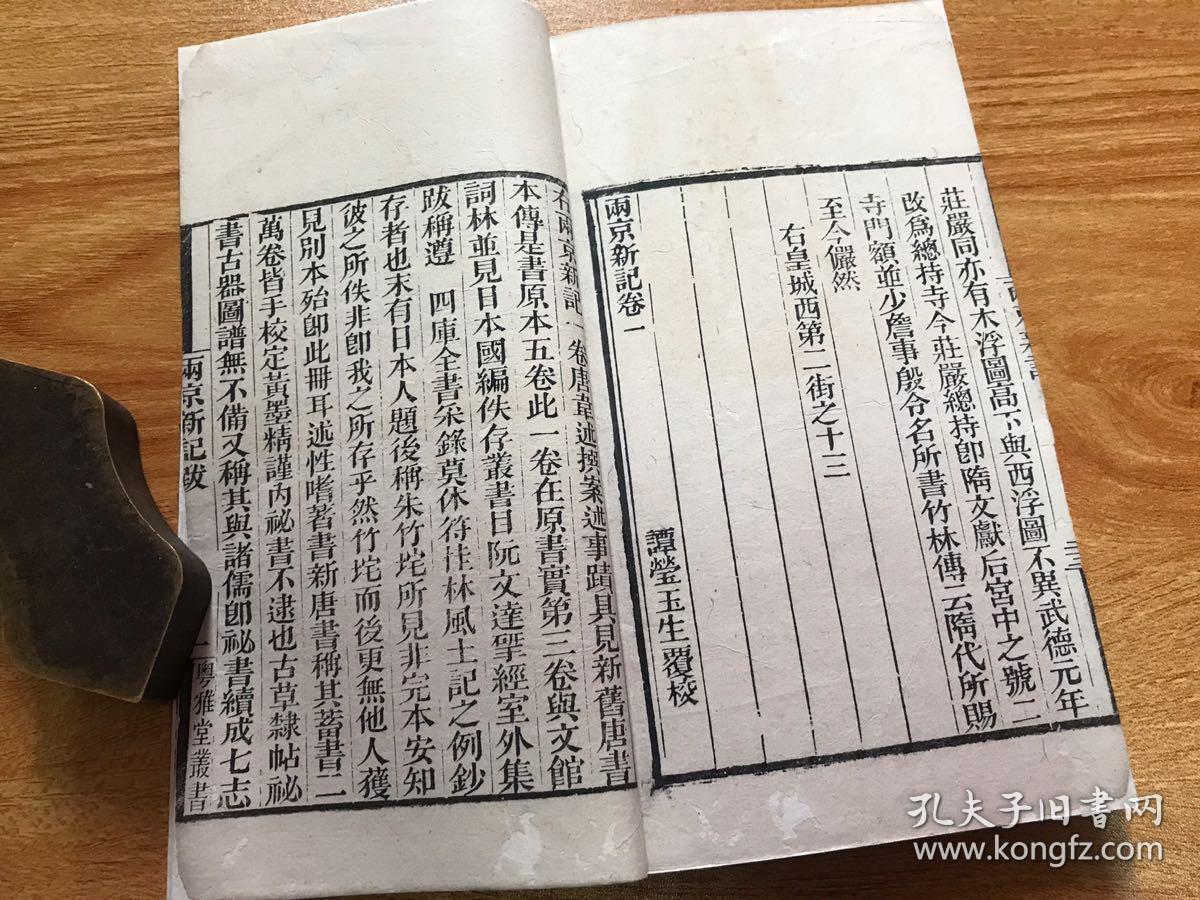 莊嚴同亦有木浮圖高下與西浮圖不異武德元年
改爲總持寺今莊嚴總持卽隋文獻后宮中之號二
寺門額並少詹事殷令名所書竹林傳云隋代所賜
至今儼然
右皇城西第二街之十三
譚瑩玉生覆校
兩京新記卷一
右兩京新記一卷唐韋述撰案述事蹟具見新舊唐書
本傳是書原本五卷此一卷在原書實第三卷與文館
詞林並見日本國編佚存叢書日阮文達揅經室外集
跋稱遵 四庫全書采錄莫休符桂林風土記之例鈔
存者也末有日本人題後稱朱竹垞所見非完本安知
彼之所佚非卽我之所存乎然竹垞而後更無他人獲
見別本殆卽此冊耳述性嗜著書新唐書稱其蓄書二
萬卷皆手校定黃墨精謹內祕書不逮也古草隸帖祕
書古器圖譜無不備又稱其與諸儒卽祕書續成七志
兩京新記跋
一
粵雅堂叢書
孔夫子旧书网
www.kongfz.com